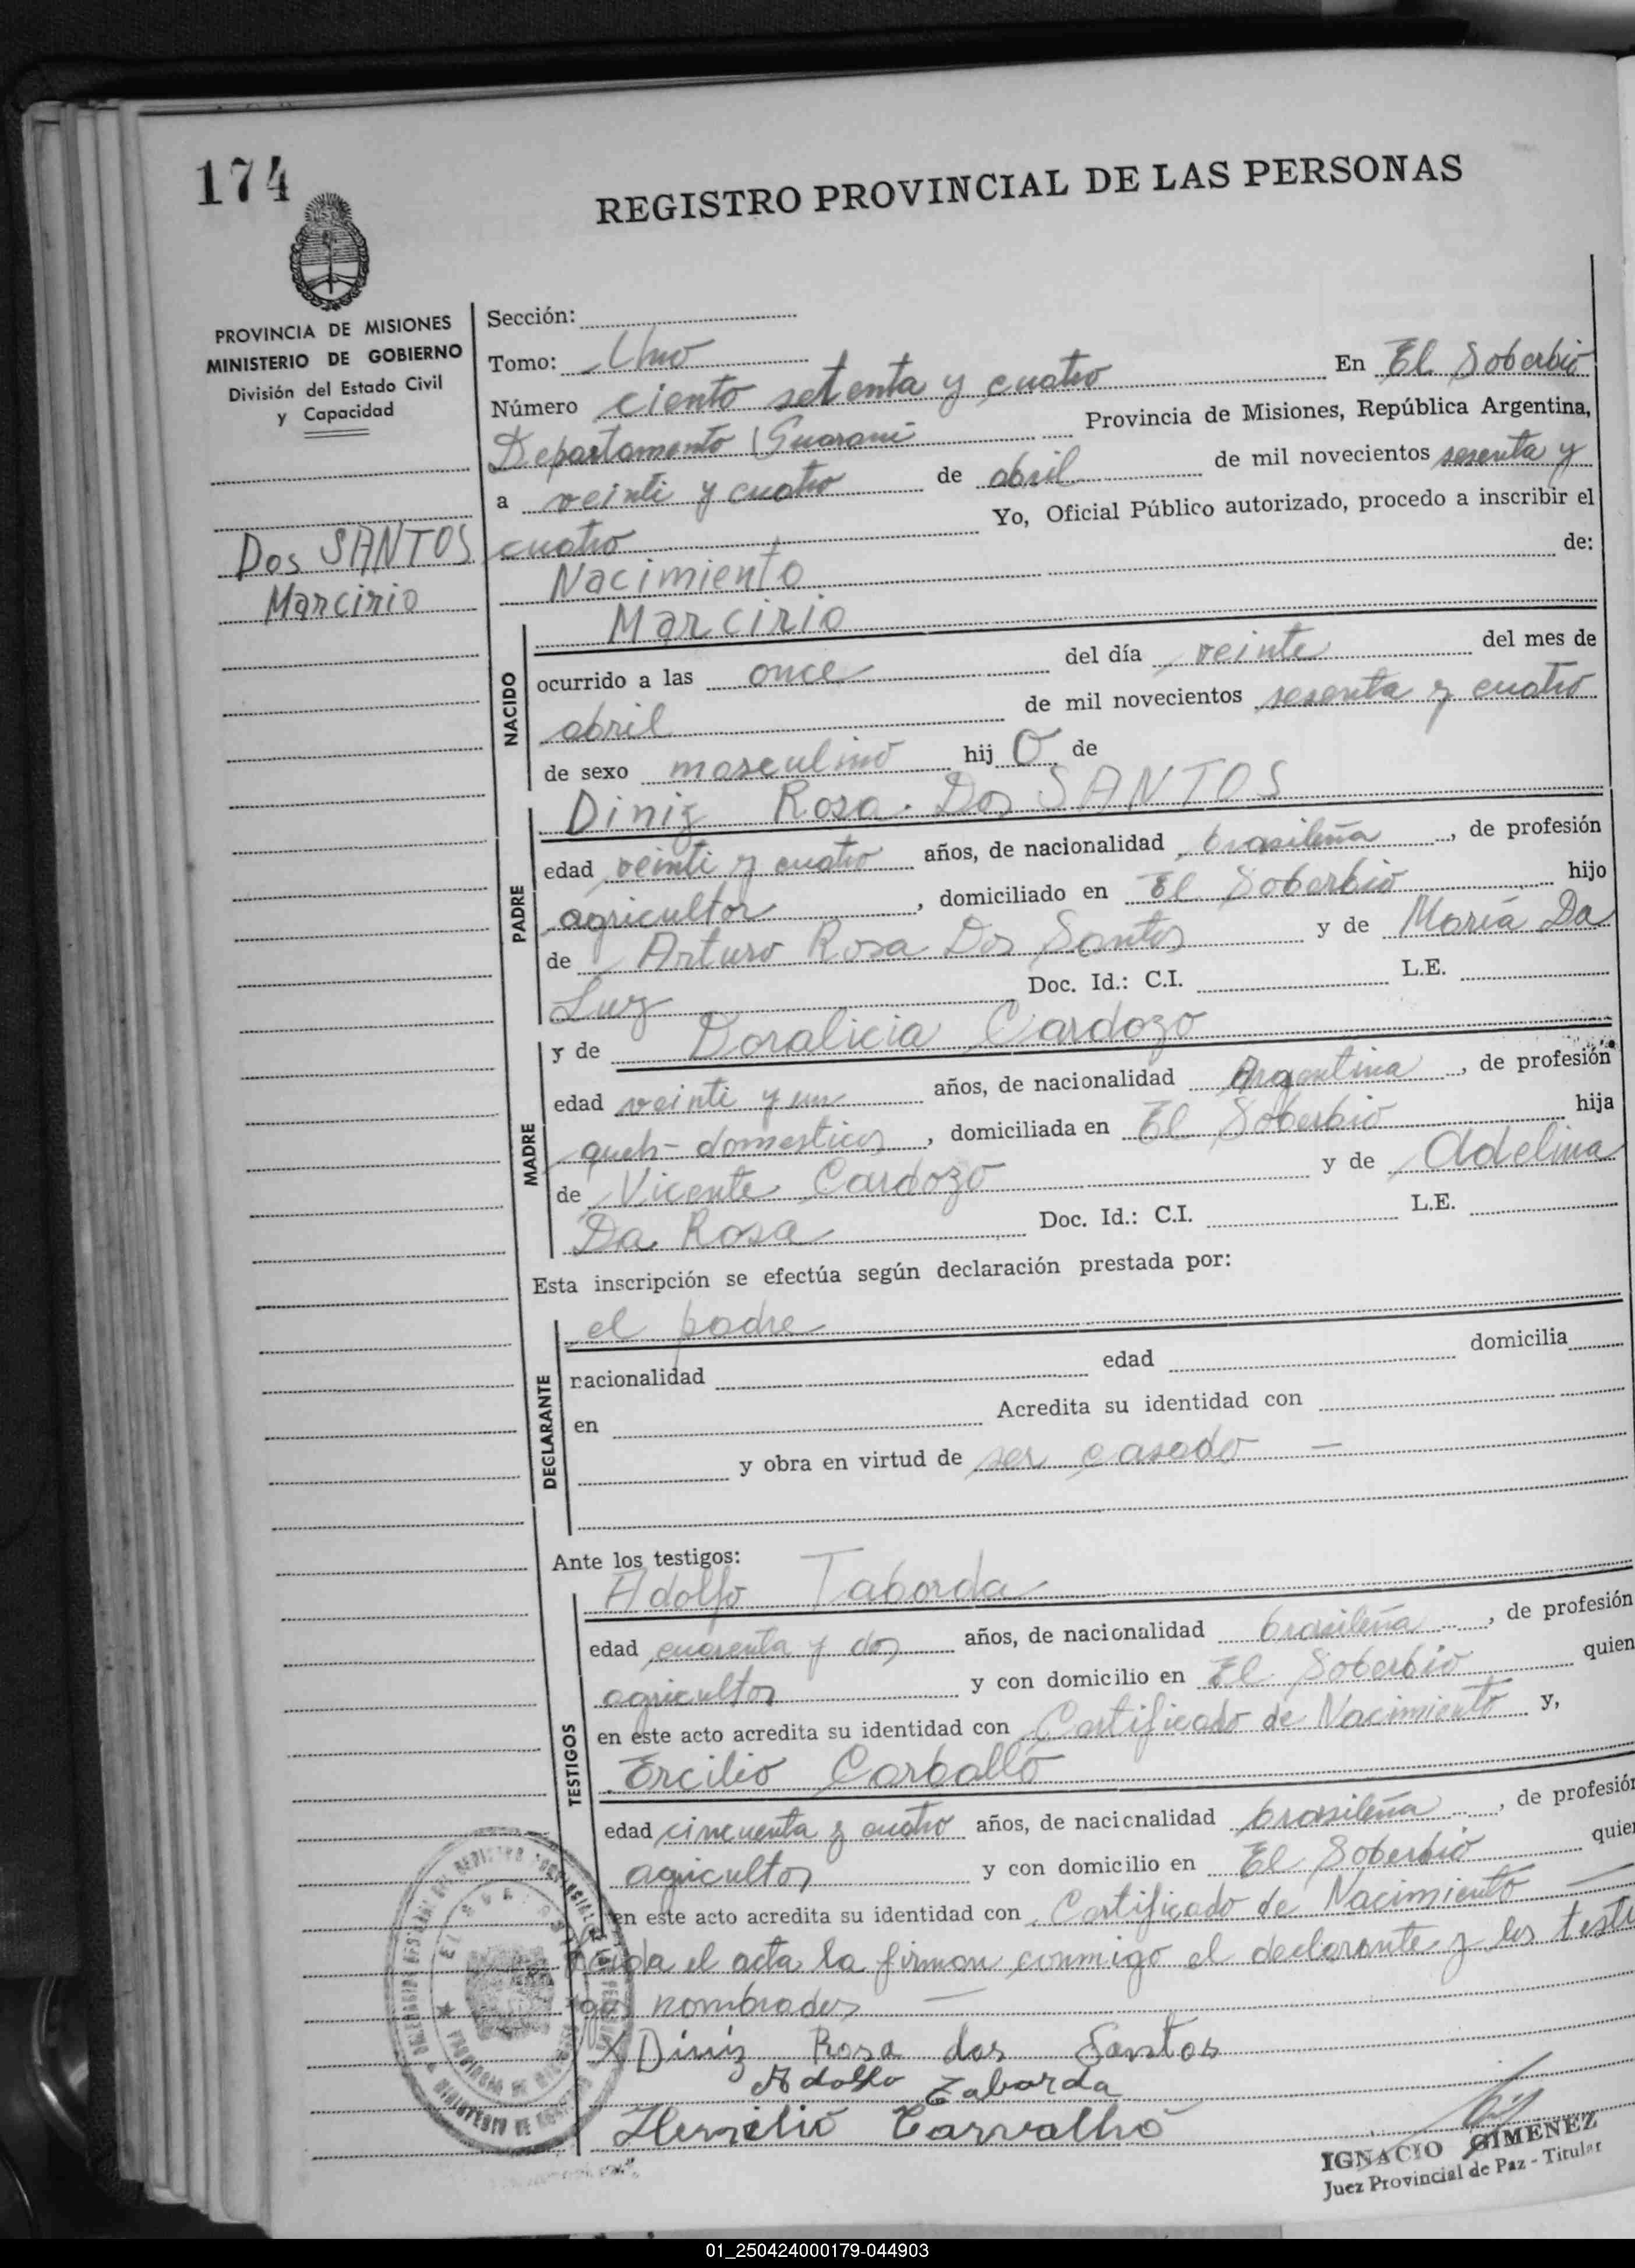 174
REGISTRO PROVINCIAL DE LAS PERSONAS
PROVINCIA DE MISIONES
MINISTERIO DE GOBIERNO
División del Estado Civil
y Capacidad
Dos SANTOS
Marcirio
Sección:
Tomo: Uno
Número ciento setenta y cuatro En El Soberbio
Departamento Guaraní Provincia de Misiones, República Argentina,
a veinti y cuatro de abril de mil novecientos sesenta y
cuatro Yo, Oficial Público autorizado, procedo a inscribir el
Nacimiento de:
NACIDO
Marcirio
ocurrido a las once del día veinte del mes de
abril de mil novecientos sesenta y cuatro
de sexo masculino hij O de
PADRE
Diniz Rosa Dos SANTOS
edad veinti y cuatro años, de nacionalidad brasileña, de profesión
agricultor, domiciliado en El Soberbio hijo
de Arturo Rosa Dos Santos y de María Da
Luz Doc. Id.: C.I. L.E.
MADRE
y de Doralicia Cardozo
edad veinti y un años, de nacionalidad Argentina, de profesión
queh-domesticos, domiciliada en El Soberbio hija
de Vicente Cardozo y de Adelina
Da Rosa Doc. Id.: C.I. L.E.
Esta inscripción se efectúa según declaración prestada por:
DECLARANTE
el padre
nacionalidad edad domicilia
en Acredita su identidad con
y obra en virtud de ser casado —
Ante los testigos:
TESTIGOS
Adolfo Taborda
edad cuarenta y dos años, de nacionalidad brasileña, de profesión
agricultor y con domicilio en El Soberbio quien
en este acto acredita su identidad con Certificado de Nacimiento y,
Ercilio Carballo
edad cincuenta y cuatro años, de nacicnalidad brasileña, de profesión
agricultor y con domicilio en El Soberbio quien
en este acto acredita su identidad con Certificado de Nacimiento —
Leida el acta la firman conmigo el declarante y los testi
gos nombrados —
X Diniz Rosa dos Santos
Adolfo Taborda
Carvalhó
IGNACIO GIMENEZ
Juez Provincial de Paz - Titular
01_250424000179-044903